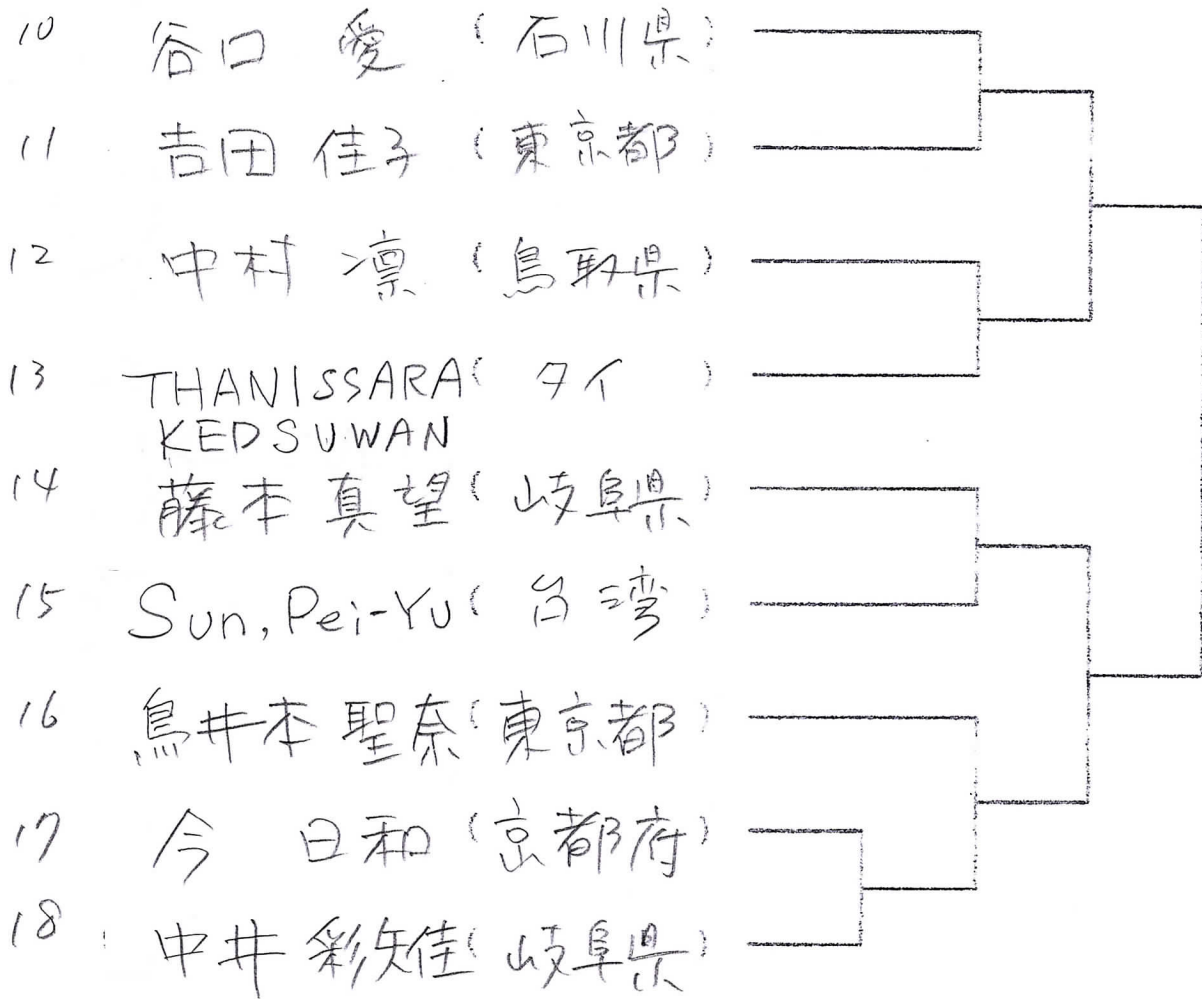 10 谷口 愛 (石川県)
11 吉田 佳子 (東京都)
12 中村 凛 (鳥取県)
13 THANISSARA (タイ)
KEDSUWAN
14 藤本 真望 (岐阜県)
15 Sun, Pei-Yu (台湾)
16 鳥井本 聖奈 (東京都)
17 今 日和 (京都府)
18 中井 彩矢佳 (岐阜県)